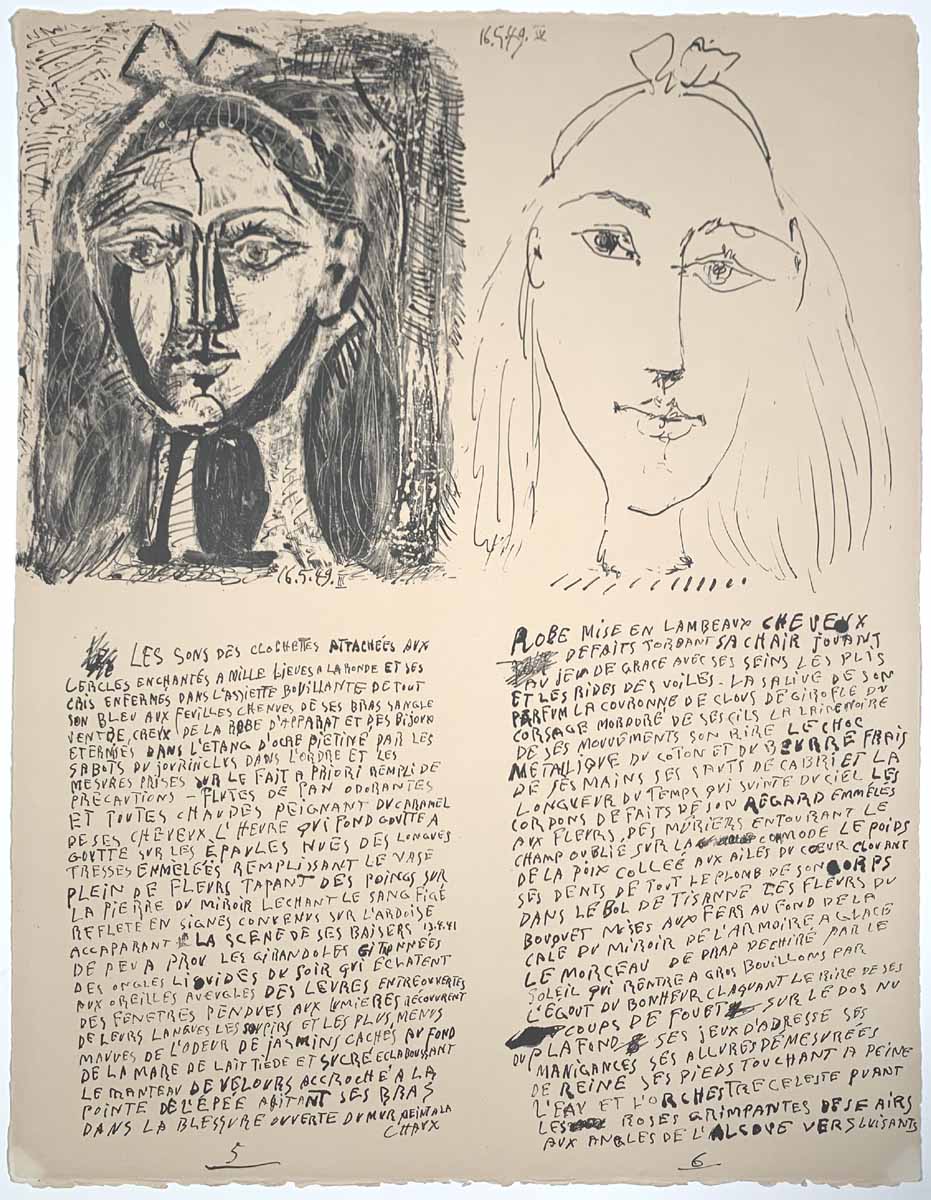 16.5.49. IV
16.5.49. III
LES SONS DES CLOCHETTES ATTACHÉES AUX
CERCLES ENCHANTÉS A MILLE LIEUES A LA RONDE ET SES
CRIS ENFERMÉS DANS L'ASSIETTE BOUILLANTE DE TOUT
SON BLEU AUX FEUILLES CHENUES DE SES BRAS SANGLE
VENTRE, CREUX DE LA ROBE D'APPARAT ET DES BIJOUX
ETERNISÉS DANS L'ETANG D'OCRE PIETINÉ PAR LES
SABOTS DU JOUR INCLUS DANS L'ORDRE ET LES
MESURES PRISES SUR LE FAIT A PRIORI REMPLI DE
PRECAUTIONS – FLUTES DE PAN ODORANTES
ET TOUTES CHAUDES PEIGNANT DU CARAMEL
DE SES CHEVEUX L'HEURE QUI FOND GOUTTE A
GOUTTE SUR LES ÉPAULES NUES DES LONGUES
TRESSES EMMELÉES REMPLISSANT LE VASE
PLEIN DE FLEURS TAPANT DES POINGS SUR
LA PIERRE DU MIROIR LECHANT LE SANG FIGÉ
REFLETÉ EN SIGNES CONVENUS SUR L'ARDOISE
ACCAPARANT LA SCENE DE SES BAISERS 13.4.41
DE PEU A PROU LES GIRANDOLES GITONNÉES
DES ONGLES LIQUIDES DU SOIR QUI ECLATENT
AUX OREILLES AVEUGLES DES LEVRES ENTREOUVERTES
DES FENETRES PENDUES AUX LUMIERES RECOUVRENT
DE LEURS LANGUES LES SOUPIRS ET LES PLUS MENUS
MAUVES DE L'ODEUR DE JASMINS CACHÉS AU FOND
DE LA MARE DE LAIT TIÈDE ET SUCRÉ ECLABOUSSANT
LE MANTEAU DE VELOURS ACCROCHÉ A LA
POINTE DE L'ÉPÉE AGITANT SES BRAS
DANS LA BLESSURE OUVERTE DU MUR PEINT A LA
CHAUX
5
ROBE MISE EN LAMBEAUX CHEVEUX
DEFAITS TORDANT SA CHAIR JOUANT
AU JEU DE GRACE AVEC SES SEINS LES PLIS
ET LES RIDES DES VOILES – LA SALIVE DE SON
PARFUM LA COURONNE DE CLOUS DE GIROFLE DU
CORSAGE MORDORÉ DE SES CILS LA LAINE NOIRE
DE SES MOUVEMENTS SON RIRE LE CHOC
METALLIQUE DU COTON ET DU BEURRE FRAIS
DE SES MAINS SES SAUTS DE CABRI ET LA
LONGUEUR DU TEMPS QUI SUINTE DU CIEL LES
CORDONS DEFAITS DE SON REGARD EMMELÉS
AUX FLEURS DES MÛRIERS ENTOURANT LE
CHAMP OUBLIÉ SUR LA COMMODE LE POIDS
DE LA POIX COLLEÉ AUX AILES DU CŒUR CLOUANT
SES DENTS DE TOUT LE PLOMB DE SON CORPS
DANS LE BOL DE TISANNE DES FLEURS DU
BOUQUET MISES AUX FERS AU FOND DE LA
CALE DU MIROIR DE L'ARMOIRE A GLACE
LE MORCEAU DE DRAP DECHIRÉ PAR LE
SOLEIL QUI RENTRE A GROS BOUILLONS PAR
L'ÉGOUT DU BONHEUR CLAQUANT LE RIRE DE SES
COUPS DE FOUET SUR LE DOS NU
DU PLAFOND SES JEUX D'ADRESSE SES
MANIGANCES SES ALLURES DÉMESURÉES
DE REINE SES PIEDS TOUCHANT A PEINE
L'EAU ET L'ORCHESTRE CELESTE PUANT
LES ROSES GRIMPANTES DE SE AIRS
AUX ANGLES DE L'ALCOVE VERS LUISANTS
6